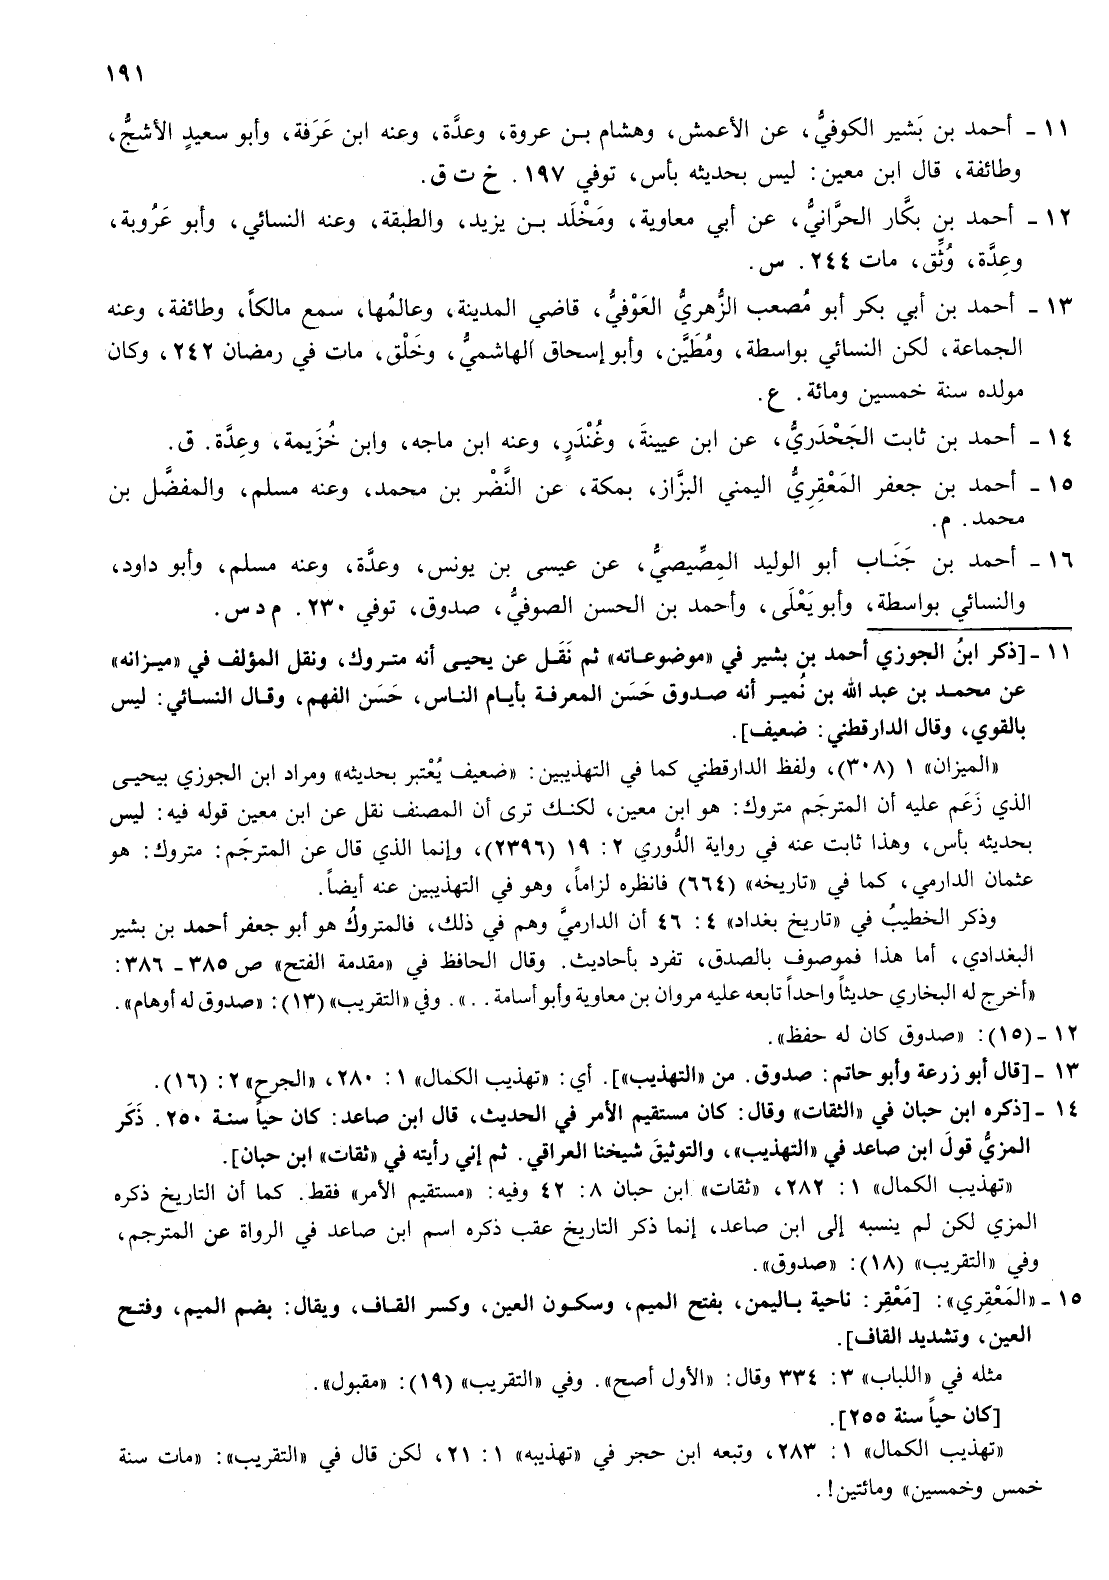 ١٩١
١١ ـ أحمد بن بَشير الكوفيُّ، عن الأعمش، وهشام بـن عروة، وعدَّة، وعنه ابن عَرَفة، وأبو سعيدٍ الأشجُّ،
وطائفة، قال ابن معين: ليس بحديثه بأس، توفي ١٩٧. خ ت ق.
١٢ ـ أحمد بن بكَّار الحرَّانيُّ، عن أبي معاوية، ومَخْلَد بـن يزيد، والطبقة، وعنه النسائي، وأبو عَرُوبة،
وعِدَّة، وُثِّق، مات ٢٤٤. س.
١٣ ـ أحمد بن أبي بكر أبو مُصعب الزُّهريُّ العَوْفيُّ، قاضي المدينة، وعالمُها، سمع مالكاً، وطائفة، وعنه
الجماعة، لكن النسائي بواسطة، ومُطَيَّن، وأبو إسحاق الهاشميُّ، وخَلْق، مات في رمضان ٢٤٢، وكان
مولده سنة خمسين ومائة. ع.
١٤ ـ أحمد بن ثابت الجَحْدَريُّ، عن ابن عيينةَ، وغُنْدَرٍ، وعنه ابن ماجه، وابن خُزَيمة، وعِدَّة. ق.
١٥ ـ أحمد بن جعفر المَعْقِرِيُّ اليمني البزَّاز، بمكة، عن النَّضْر بن محمد، وعنه مسلم، والمفضَّل بن
محمد. م.
١٦ ـ أحمد بن جَنَاب أبو الوليد المِصِّيصيُّ، عن عيسى بن يونس، وعدَّة، وعنه مسلم، وأبو داود،
والنسائي بواسطة، وأبو يَعْلَى، وأحمد بن الحسن الصوفيُّ، صدوق، توفي ٢٣٠. م د س.
١١ ـ [ذكر ابنُ الجوزي أحمد بن بشير في «موضوعاته» ثم نَقَل عن يحيى أنه متروك، ونقل المؤلف في «ميزانه»
عن محمد بن عبد الله بن نُمير أنه صدوق حَسَن المعرفة بأيام الناس، حَسَن الفهم، وقال النسائي: ليس
بالقوي، وقال الدارقطني: ضعيف].
«الميزان» ١ (٣٠٨)، ولفظ الدارقطني كما في التهذيبين: «ضعيف يُعْتبر بحديثه» ومراد ابن الجوزي بيحيى
الذي زَعَم عليه أن المترجَم متروك: هو ابن معين، لكنك ترى أن المصنف نقل عن ابن معين قوله فيه: ليس
بحديثه بأس، وهذا ثابت عنه في رواية الدُّوري ٢: ١٩ (٢٣٩٦)، وإنما الذي قال عن المترجَم: متروك: هو
عثمان الدارمي، كما في «تاريخه» (٦٦٤) فانظره لزاماً، وهو في التهذيبين عنه أيضاً.
وذكر الخطيبُ في «تاريخ بغداد» ٤: ٤٦ أن الدارميَّ وهم في ذلك، فالمتروكُ هو أبو جعفر أحمد بن بشير
البغدادي، أما هذا فموصوف بالصدق، تفرد بأحاديث. وقال الحافظ في «مقدمة الفتح» ص ٣٨٥ ـ ٣٨٦:
«أخرج له البخاري حديثاً واحداً تابعه عليه مروان بن معاوية وأبو أسامة . . ». وفي «التقريب» (١٣): «صدوق له أوهام».
١٢ ـ (١٥): «صدوق كان له حفظ».
١٣ ـ [قال أبو زرعة وأبو حاتم: صدوق. من «التهذيب»]. أي: «تهذيب الكمال» ١: ٢٨٠، «الجرح» ٢: (١٦).
١٤ ـ [ذكره ابن حبان في «الثقات» وقال: كان مستقيم الأمر في الحديث، قال ابن صاعد: كان حياً سنة ٢٥٠. ذَكَر
المزيُّ قولَ ابن صاعد في «التهذيب»، والتوثيقَ شيخنا العراقي. ثم إني رأيته في «ثقات» ابن حبان].
«تهذيب الكمال» ١: ٢٨٢، «ثقات» ابن حبان ٨: ٤٢ وفيه: «مستقيم الأمر» فقط. كما أن التاريخ ذكره
المزي لكن لم ينسبه إلى ابن صاعد، إنما ذكر التاريخ عقب ذكره اسم ابن صاعد في الرواة عن المترجم،
وفي «التقريب» (١٨): «صدوق».
١٥ ـ «المَعْقِري»: [مَعْقِر: ناحية باليمن، بفتح الميم، وسكون العين، وكسر القاف، ويقال: بضم الميم، وفتح
العين، وتشديد القاف].
مثله في «اللباب» ٣: ٣٣٤ وقال: «الأول أصح». وفي «التقريب» (١٩): «مقبول».
[كان حياً سنة ٢٥٥].
«تهذيب الكمال» ١: ٢٨٣، وتبعه ابن حجر في «تهذيبه» ١: ٢١، لكن قال في «التقريب»: «مات سنة
خمس وخمسين» ومائتين!.